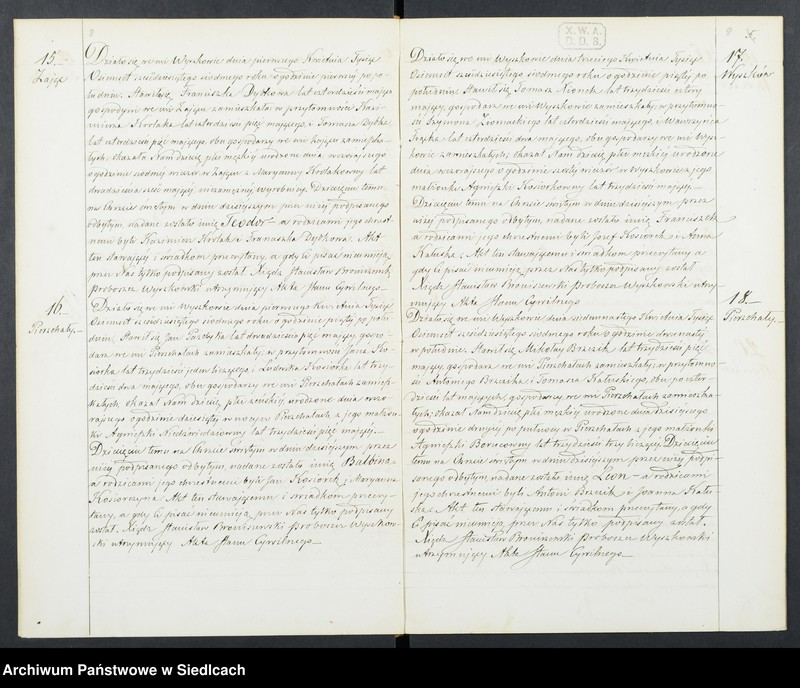 8
15.
Zając
Działo się we wsi Wyszkowie dnia pierwszego Kwietnia Tysiąc
Ośmset sześćdziesiątego siódmego roku o godzinie pierwszej po po-
łudniu. Stawiła się Franciszka Dytkowa lat czterdzieści mająca
gospodyni we wsi Zającu zamieszkała w przytomności Kazi-
mierza Kordaka lat czterdzieści pięć mającego, i Tomasza Dytka
lat czterdzieści pięć mającego obu gospodarzy we wsi Zającu zamieszka-
łych, okazała Nam dziecię płci męskiej urodzone dnia wczorajszego
o godzinie siódmej w Zającu z Maryanny Kordakowny lat
dwadzieścia sześć mającej niezamężnej wyrobnicy. Dziecięciu temu
na Chrzcie świętym w dniu dzisiejszym przez niżej podpisanego
odbytym, nadane zostało imię Teodor a rodzicami jego chrzest-
nemi byli Kazimierz Kordak i Franciszka Dytkowa. Akt
ten stawającej i świadkom przeczytany, a gdy Ci pisać nie umieją
przez Nas tylko podpisany został Xiądz Stanisław Broniszewski
Proboszcz Wyszkowski utrzymujący Akta Stanu Cywilnego
16.
Pierzchały.
Działo się we wsi Wyszkowie dnia pierwszego Kwietnia Tysiąc
Ośmset sześćdziesiątego siódmego roku o godzinie piątej po połu-
dniu, Stawił się Jan lat dwadzieścia pięć mający gospo-
darz we wsi Pierzchałach zamieszkały, w przytomności Jana Ko-
siorka lat trzydzieści jeden liczącego i Ludwika Kosiorka lat trzy-
dzieści dwa mającego, obu gospodarzy we wsi Pierzchałach zamiesz-
kałych, okazał Nam dziecię płci żeńskiej urodzone dnia wczo-
rajszego o godzinie dziesiątej w nocy w Pierzchałach z jego małżon-
ki Agnieszki Niedźwiedziowny lat trzydzieści pięć mającej.
Dziecięciu temu na Chrzcie świętym w dniu dzisiejszym przez
niżej podpisanego odbytym, nadane zostało imię Balbina
a rodzicami jego chrzestnemi byli Jan Kosiorek i Maryanna
Kosiorczyna Akt ten stawającemu i świadkom przeczy-
tany, a gdy Ci pisać nieumieją przez Nas tylko podpisany
został. Xiądz Stanisław Broniszewski Proboszcz Wyszkow-
ski utrzymujący Akta Stanu Cywilnego
X.W.A.
D.D.S.
9
17.
Wyszków
Działo się we wsi Wyszkowie dnia trzeciego Kwietnia Tysiąc
Ośmset sześćdziesiątego siódmego roku o godzinie piątej po
południu Stawił się Tomasz lat trzydzieści cztery
mający, gospodarz we wsi Wyszkowie zamieszkały, w przytomno-
ści Szymona Ziomackiego lat czterdzieści mającego, i Wawrzyńca
Frąska lat czterdzieści dwa mającego, obu gospodarzy we wsi Wysz-
kowie zamieszkałych, okazał Nam dziecię płci męskiej urodzone
dnia wczorajszego o godzinie szóstej w Wyszkowie z jego
małżonki Agnieszki Kosiorkowny lat trzydzieści mającej.
Dziecięciu temu na Chrzcie świętym w dniu dzisiejszym przez
niżej podpisanego odbytym, nadane zostało imię Franciszek
a rodzicami jego chrzestnemi byli Józef Kosiorek i Anna
Kałuska. Akt ten stawającemu i świadkom przeczytany a
gdy Ci pisać nieumieją przez Nas tylko podpisany został
Xiądz Stanisław Broniszewski Proboszcz Wyszkowski utrzy-
mujący Akta Stanu Cywilnego
18.
Pierzchały.
Działo się we wsi Wyszkowie dnia siedmnastego Kwietnia Tysiąc
Ośmset sześćdziesiątego siódmego roku o godzinie dwunastej
w południe. Stawił się Mikołaj Brzezik lat trzydzieści pięć
mający, gospodarz we wsi Pierzchałach zamieszkały, w przytomno-
ści Antoniego Brzezika i Tomasza Kałuskiego, obu po czter-
dzieści lat mających, gospodarzy we wsi Pierzchałach zamieszka-
łych, okazał Nam dziecię płci męskiej urodzone dnia dzisiejszego
o godzinie drugiej po północy w Pierzchałach z jego małżonki
Agnieszki lat trzydzieści trzy liczącej. Dziecięciu
temu na Chrzcie świętym w dniu dzisiejszym przez niżej podpi-
sanego odbytym, nadane zostało imię Leon a rodzicami
jego chrzestnemi byli Antoni Brzezik i Joanna Kału-
ska. Akt ten stawającemu i świadkom przeczytany, a gdy
Ci pisać nieumieją przez Nas tylko podpisany został.
Xiądz Stanisław Broniszewski Proboszcz Wyszkowski
utrzymujący Akta Stanu Cywilnego
Archiwum Państwowe w Siedlcach